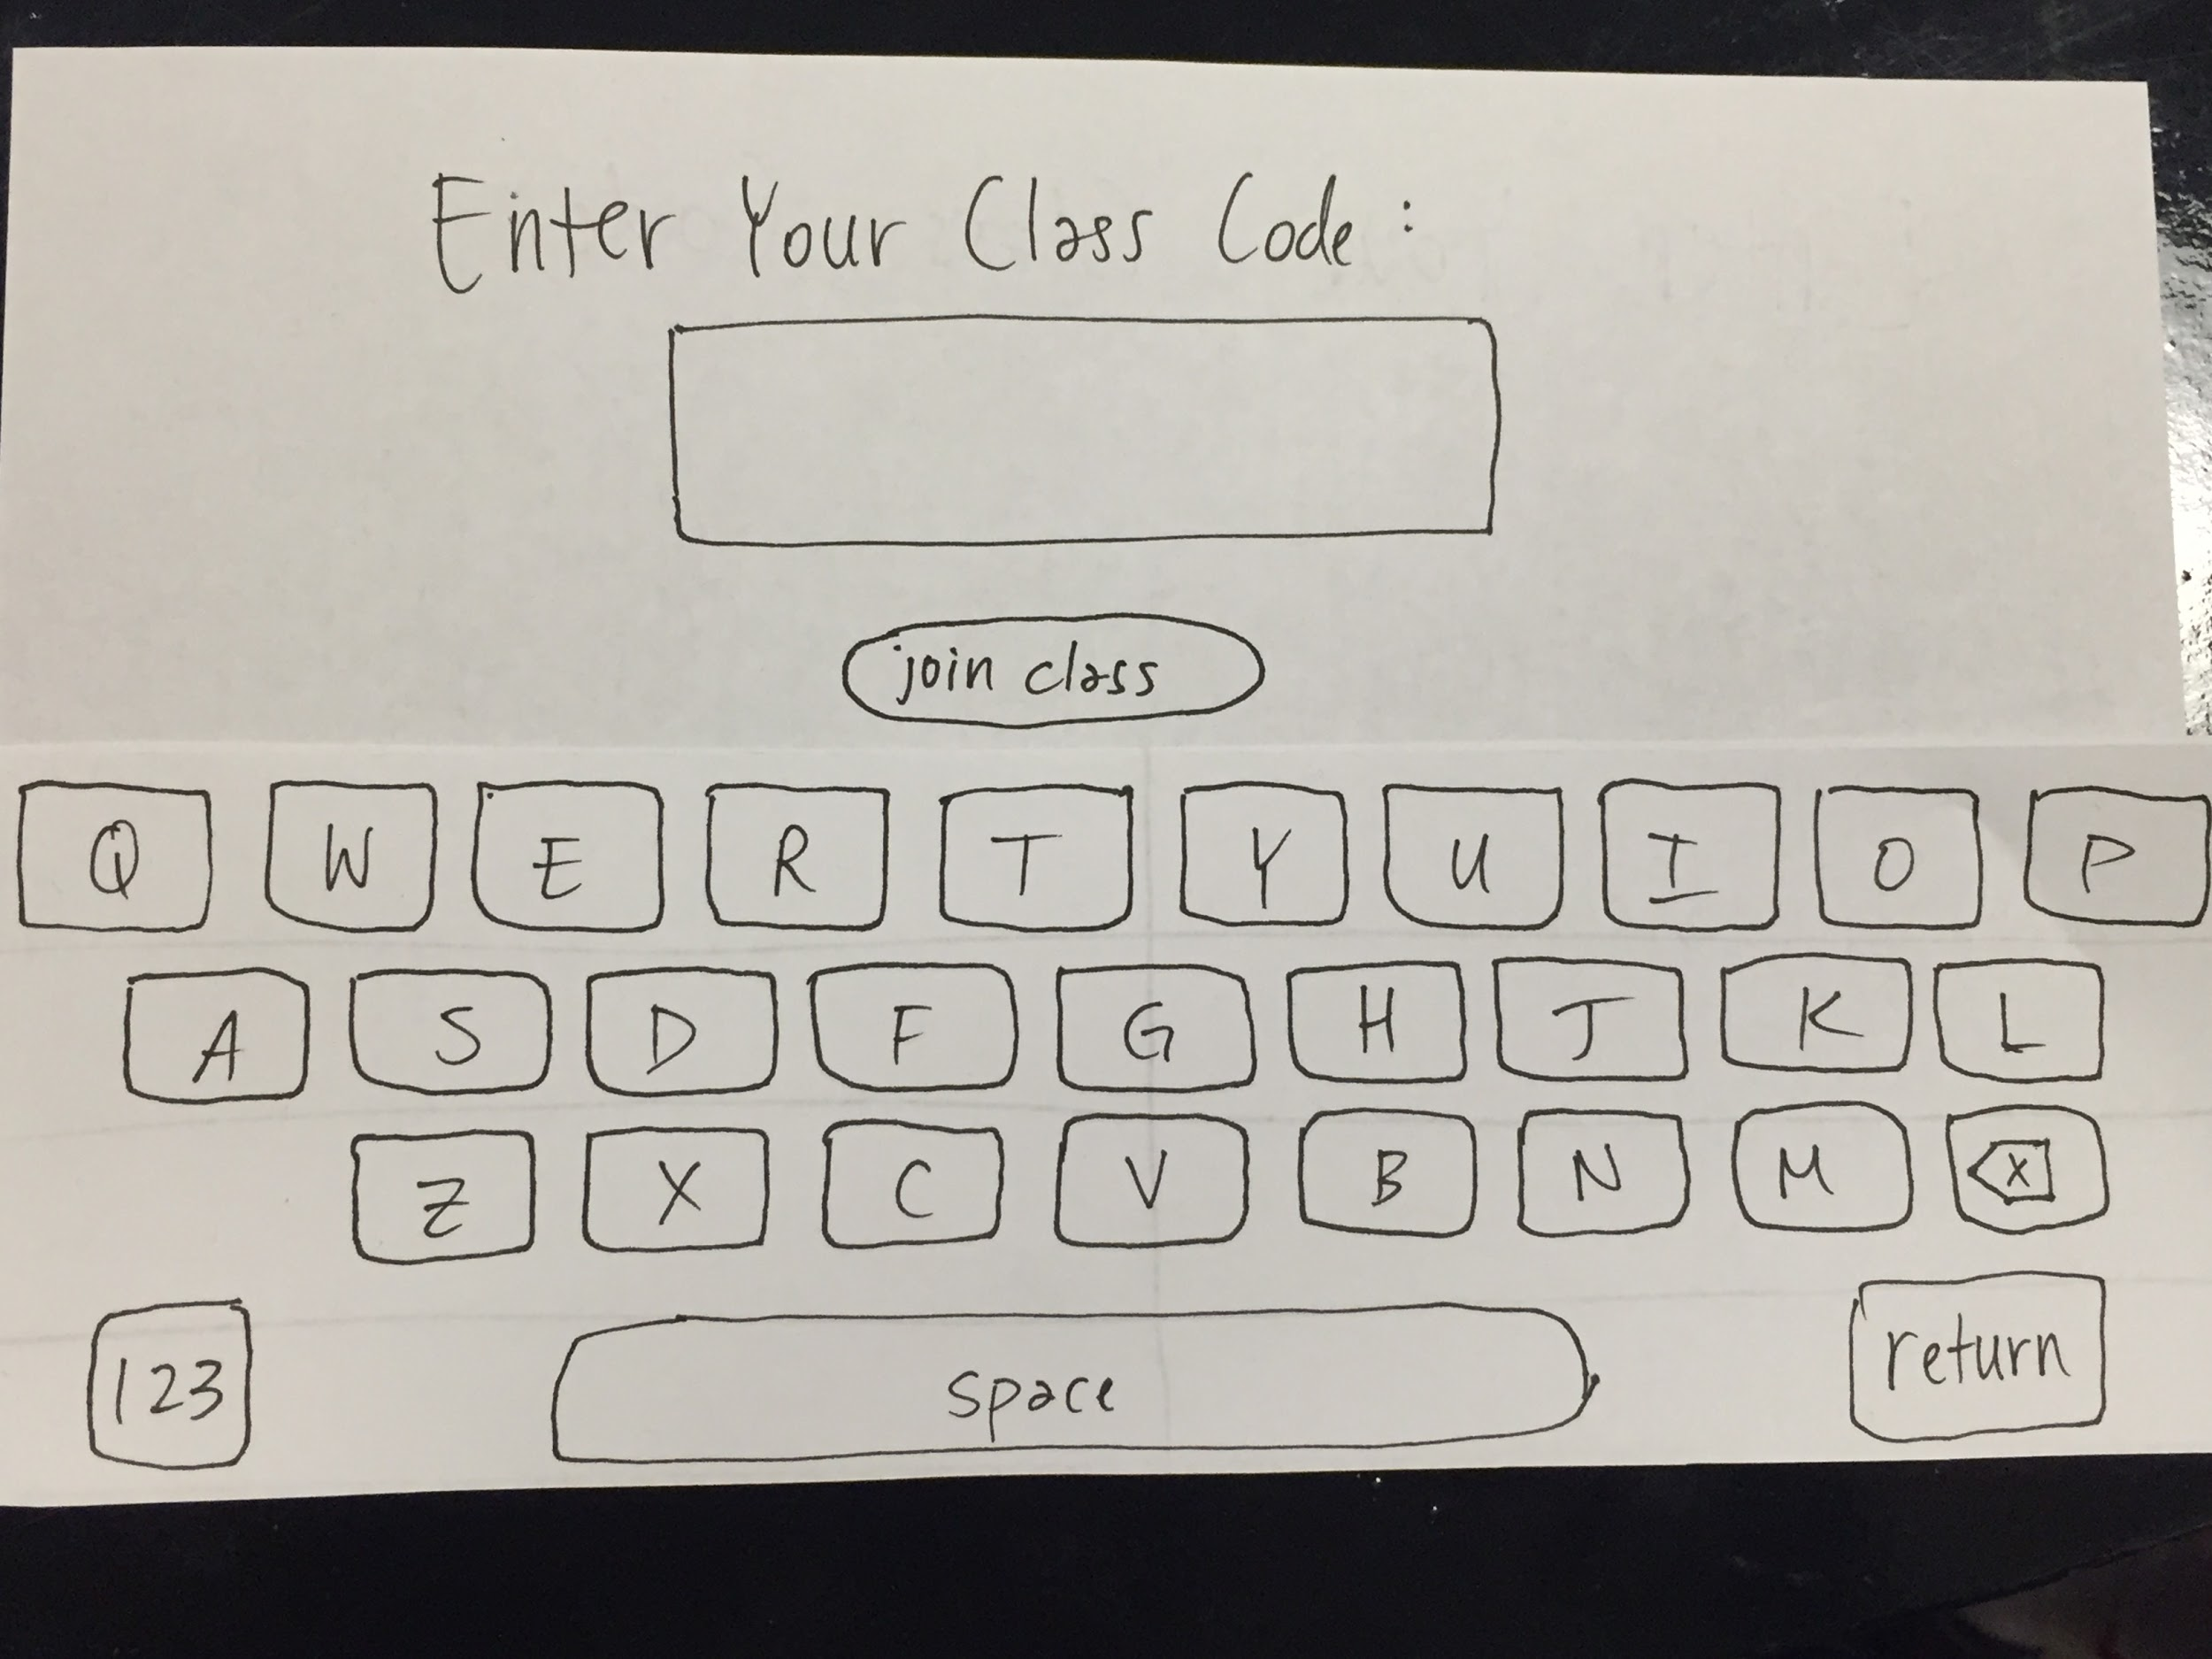 Enter Your Class Code:
join class
Q W E R T Y U I O P
A S D F G H J K L
Z X C V B N M X
123 space return